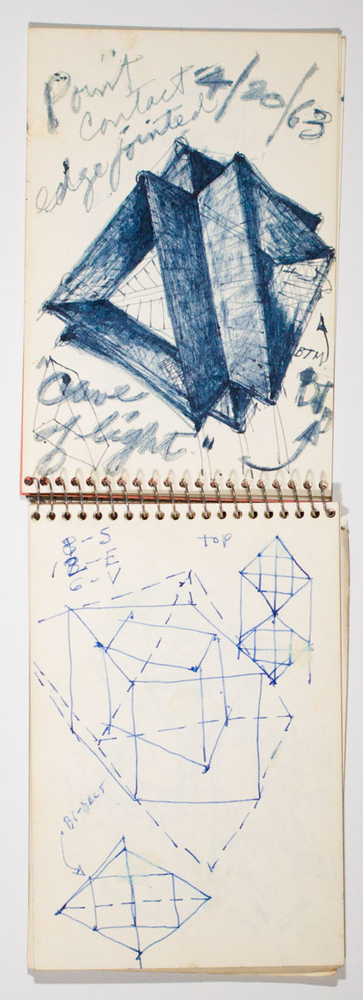 Point
contact
edge jointed
4/20/63
BTM
"Cave
of light"
8-S
12-E
6-V
top
Bi-sect